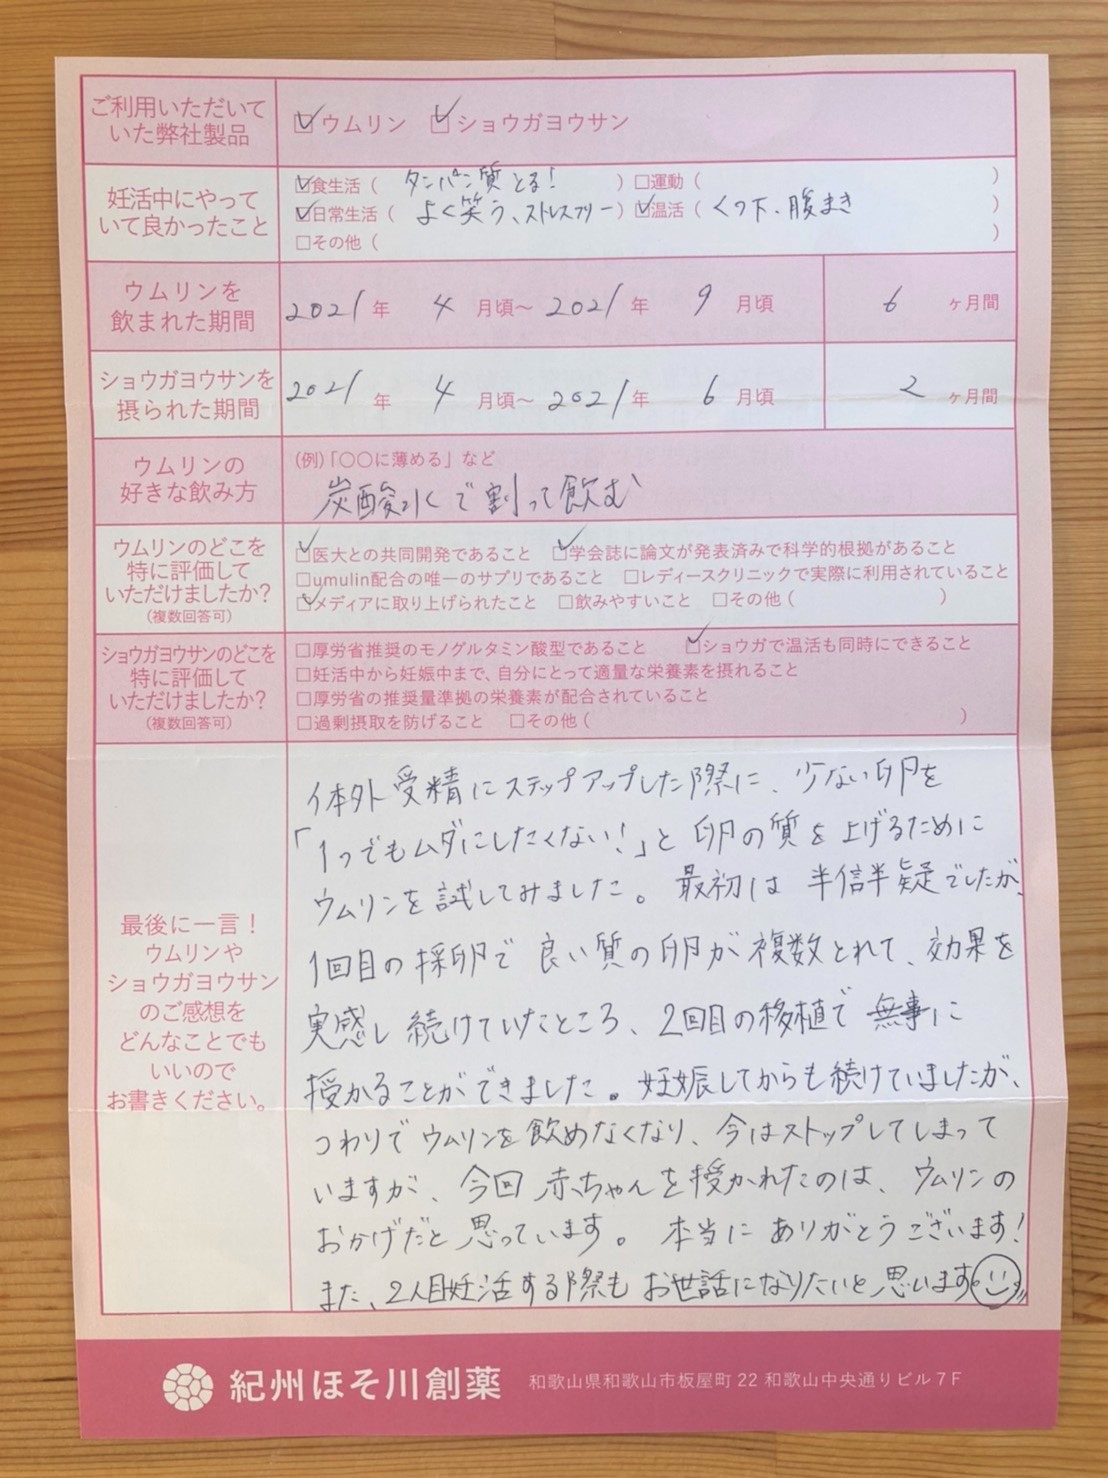 ご利用いただいて
いた弊社製品
☑ウムリン ☑ショウガヨウサン
妊活中にやって
いて良かったこと
☑食生活( タンパン質とる! ) □運動( )
☑日常生活( よく笑う、ストレスフリー ) ☑温活( くつ下、腹まき )
□その他( )
ウムリンを
飲まれた期間
2021年 4月頃〜2021年 9月頃 6ヶ月間
ショウガヨウサンを
摂られた期間
2021年 4月頃〜2021年 6月頃 2ヶ月間
ウムリンの
好きな飲み方
(例)「〇〇に薄める」など
炭酸水で割って飲む
ウムリンのどこを
特に評価して
いただけましたか?
(複数回答可)
☑医大との共同開発であること ☑学会誌に論文が発表済みで科学的根拠があること
□umulin配合の唯一のサプリであること □レディースクリニックで実際に利用されていること
☑メディアに取り上げられたこと □飲みやすいこと □その他( )
ショウガヨウサンのどこを
特に評価して
いただけましたか?
(複数回答可)
□厚労省推奨のモノグルタミン酸型であること ☑ショウガで温活も同時にできること
□妊活中から妊娠中まで、自分にとって適量な栄養素を摂れること
□厚労省の推奨量準拠の栄養素が配合されていること
□過剰摂取を防げること □その他( )
最後に一言!
ウムリンや
ショウガヨウサン
のご感想を
どんなことでも
いいので
お書きください。
体外受精にステップアップした際に、少ない卵を
「1つでもムダにしたくない!」と卵の質を上げるために
ウムリンを試してみました。最初は半信半疑でしたが、
1回目の採卵で良い質の卵が複数とれて、効果を
実感し続けていたところ、2回目の移植で無事に
授かることができました。妊娠してからも続けていましたが、
つわりでウムリンを飲めなくなり、今はストップしてしまって
いますが、今回赤ちゃんを授かれたのは、ウムリンの
おかげだと思っています。本当にありがとうございます!
また、2人目妊活する際もお世話になりたいと思います
紀州ほそ川創薬 和歌山県和歌山市板屋町22 和歌山中央通りビル7F